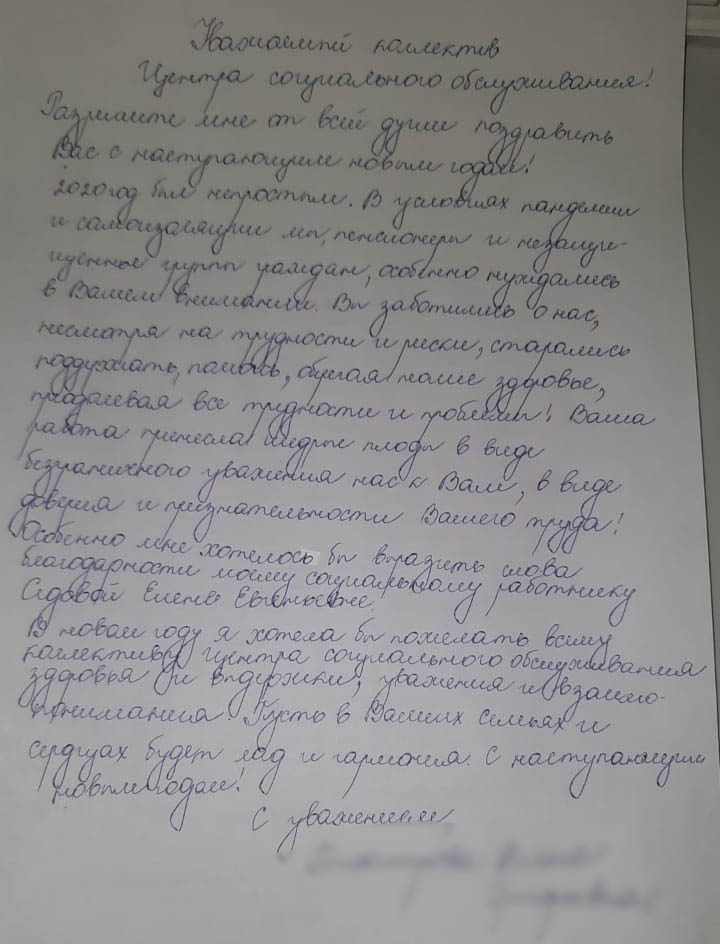 Уважаемый коллектив
Центра социального обслуживания!
Разрешите мне от всей души поздравить
Вас с наступающим новым годом!
2020 год был непростым. В условиях пандемии
и самоизоляции мы, пенсионеры и незащи-
щенные группы граждан, особенно нуждались
в Вашем внимании. Вы заботились о нас,
несмотря на трудности и риски, старались
поддержать, помочь, оберегая наше здоровье,
преодолевая все трудности и проблемы! Ваша
работа принесла щедрые плоды в виде
безграничного уважения нас к Вам, в виде
доверия и признательности Вашего труда!
Особенно мне хотелось бы выразить слова
благодарности моему социальному работнику
Седовой Елене Евгеньевне.
В новом году я хотела бы пожелать всему
коллективу Центра социального обслуживания
здоровья и выдержки, уважения и взаимо-
понимания. Пусть в Ваших семьях и
сердцах будет лад и гармония. С наступающим
новым годом!
С уважением